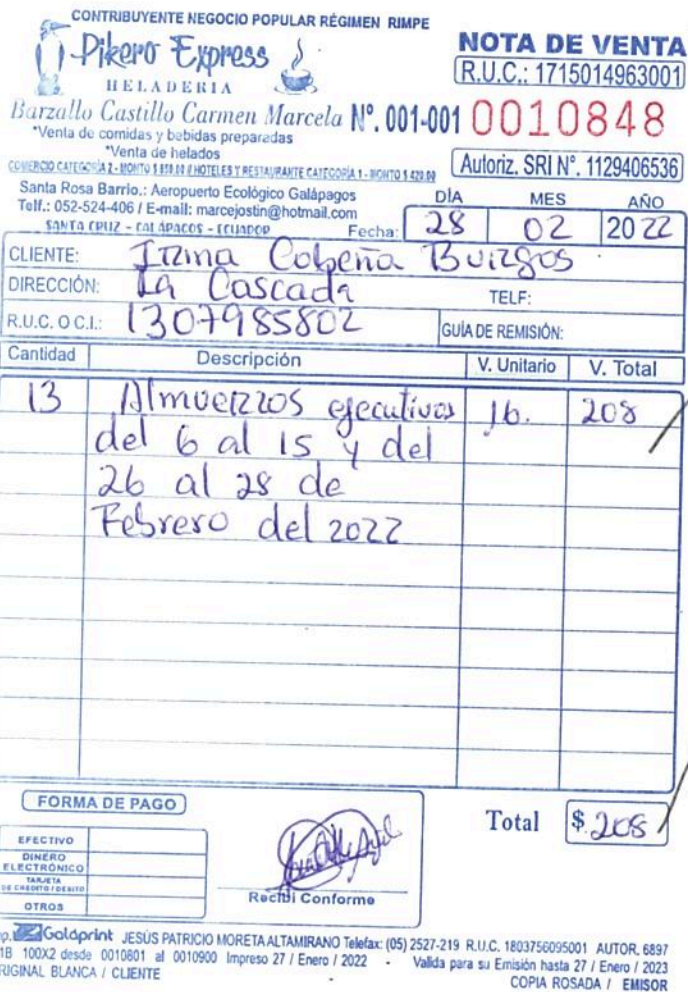 CONTRIBUYENTE NEGOCIO POPULAR RÉGIMEN RIMPE
Pikero Express
HELADERIA
Barzallo Castillo Carmen Marcela
*Venta de comidas y bebidas preparadas
*Venta de helados
COMERCIO CATEGORÍA 2 - MONTO $ 850.00 // HOTELES Y RESTAURANTE CATEGORÍA 1 - MONTO $ 420.00
Santa Rosa Barrio.: Aeropuerto Ecológico Galápagos
Telf.: 052-524-406 / E-mail: marcejostin@hotmail.com
SANTA CRUZ - GALÁPAGOS - ECUADOR
NOTA DE VENTA
R.U.C.: 1715014963001
Nº. 001-001 0010848
Autoriz. SRI Nº. 1129406536
DÍA MES AÑO
Fecha: 28 02 2022
CLIENTE: Irina Cobeña Burgos
DIRECCIÓN: La Cascada TELF:
R.U.C. O C.I.: 1307985802 GUÍA DE REMISIÓN:
Cantidad Descripción V. Unitario V. Total
13 Almuerzos ejecutivos 16. 208
del 6 al 15 y del
26 al 28 de
Febrero del 2022
FORMA DE PAGO
EFECTIVO
DINERO ELECTRÓNICO
TARJETA DE CRÉDITO / DÉBITO
OTROS
Recibí Conforme
Total $ 208
Goldprint JESÚS PATRICIO MORETA ALTAMIRANO Telefax: (05) 2527-219 R.U.C. 1803756095001 AUTOR. 6897
1B 100X2 desde 0010801 al 0010900 Impreso 27 / Enero / 2022 - Valida para su Emisión hasta 27 / Enero / 2023
RIGINAL BLANCA / CLIENTE COPIA ROSADA / EMISOR